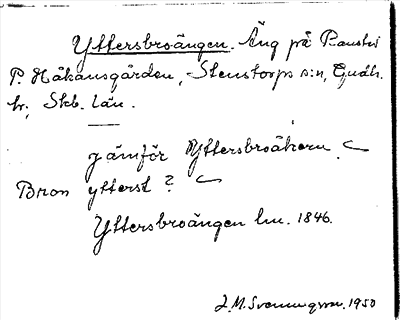 Yttersbroängen. Äng på
P. Håkansgården, Stenstorps s:n, Gudh.
hr, Skb. län.
jämför Yttersbroåkern.
Bron ytterst?
Yttersbroängen lm. 1846.
J. M. 1950